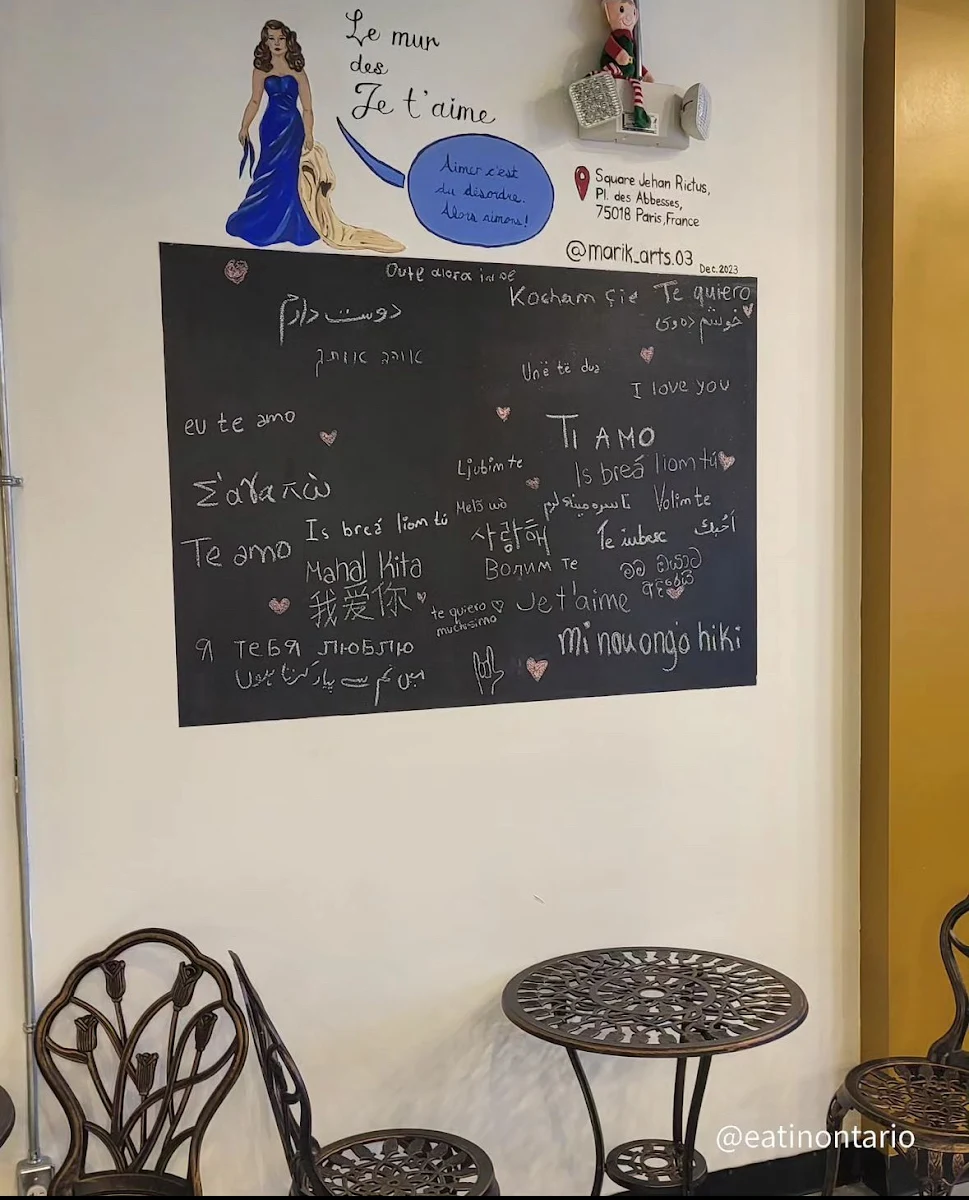 Le mur
des
Je t'aime
Aimer c'est
du désordre.
Alors aimons!
Square Jehan Rictus,
Pl. des Abbesses,
75018 Paris, France
@marik_arts.03
Dec. 2023
Kocham Çie
Te quiero
دوست دارم
خوشم دەوێ
אוהב אותך
Unë të dua
I love you
eu te amo
Ti AMO
Ljubim te
Is breá liom tú
Σ'αγαπώ
Melɔ̃ wò
تاسره مینه لرم
Volim te
Is breá liom tú
사랑해
Te iubesc
أحبك
Te amo
Mahal Kita
Волим те
මම ඔයාට
ආදරෙයි
我爱你
te quiero
muchisimo
Je t'aime
Я ТЕБЯ ЛЮБЛЮ
mi nou ongo hiki
میں تم سے پیار کرتا ہوں
@eatinontario